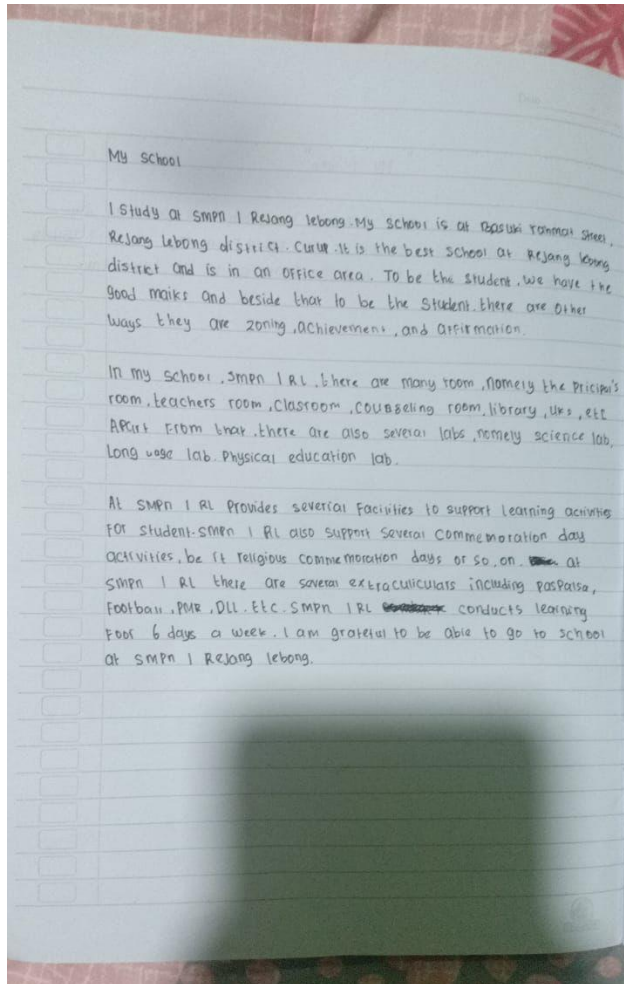 My School
I Study at SMPN 1 Rejang lebong. My school is at Basuki rahmat Street,
Rejang Lebong district. Curup. It is the best school at Rejang lebong
district and is in an office area. To be the student, we have the
good maiks and beside that to be the Student. there are other
ways they are zoning, achievement, and affirmation.
In my school, Smpn 1 RL, there are many room, namely the Pricipal's
room, teachers room, Clasroom, Counseling room, library, uks, etc
Apart From that, there are also several labs, namely science lab,
Long uage lab. Physical education lab.
At SMPn 1 RL Provides severial Facilities to support learning activities
For student. smpn 1 RL also support Several Commemoration day
activities, be it religious commemoration days or so, on. at
Smpn 1 RL there are several extraculiculars including paspalsa,
Football, PMR, DLL. Etc. Smpn 1 RL conducts learning
Foor 6 days a week. I am grateful to be able to go to school
at SMPn 1 Rejang lebong.